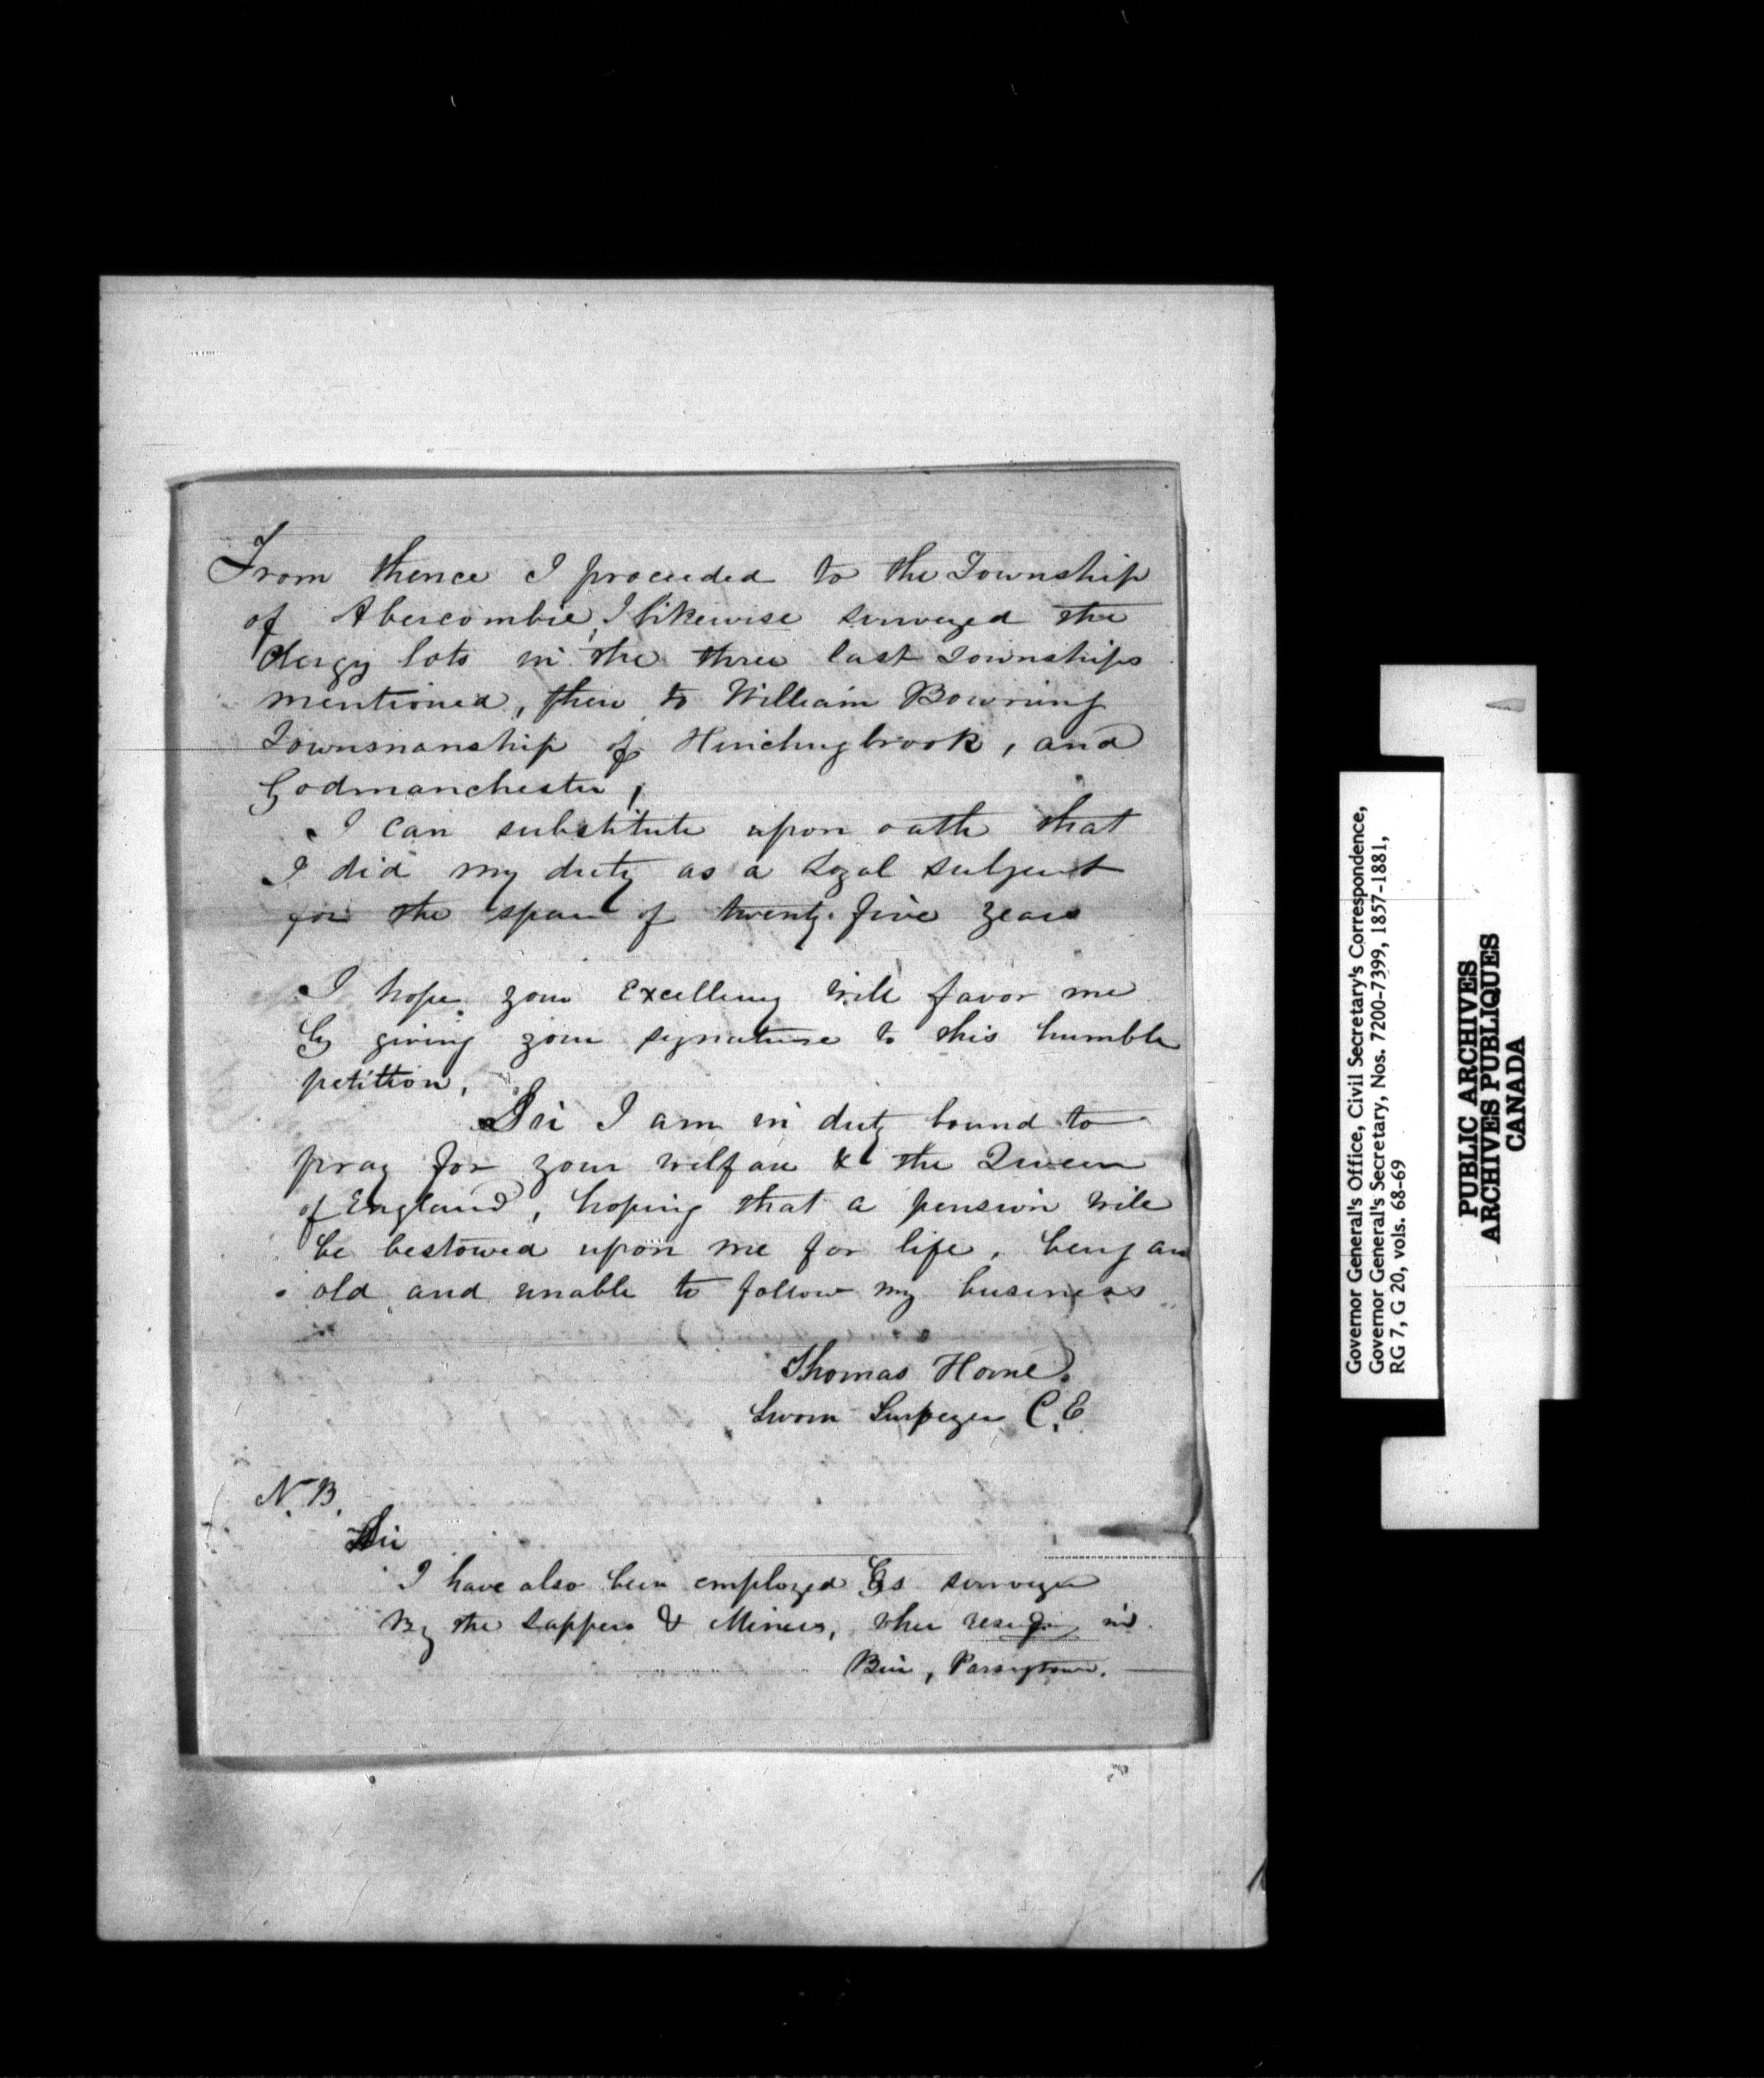 From thence I proceeded to the Township
of Abercombie, I likewise surveyed the
Clergy lots in the three last Townships
mentioned, then to William Bowning
Townsmanship of Hinchingbrook, and
Godmanchester,
I can substitute upon oath that
I did my duty as a Loyal subject
for the span of twenty-five years
I hope your Excellency will favor me
by giving your signature to this humble
petition,
Sir I am in duty bound to
pray for your welfare & the Queen
of England, hoping that a pension will
be bestowed upon me for life, being an
old and unable to follow my business
Thomas Horne.
Sworn Surveyer C.E
N.B.
Sir
I have also been employed as surveyer
By the Sappers & Miners, when in
Birr, Parsonstown.
Governor General's Office, Civil Secretary's Correspondence,
Governor General's Secretary, Nos. 7200-7399, 1857-1881,
RG 7, G 20, vols. 68-69
PUBLIC ARCHIVES
ARCHIVES PUBLIQUES
CANADA